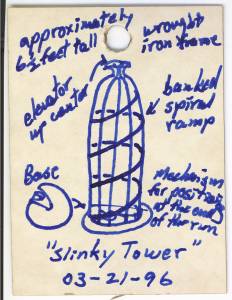 approximately
6½ feet tall
wrought
iron frame
elevator
up center
banked
spiral
ramp
Base
Mechanism
for position
at the end
of the run
"Slinky Tower"
03-21-96